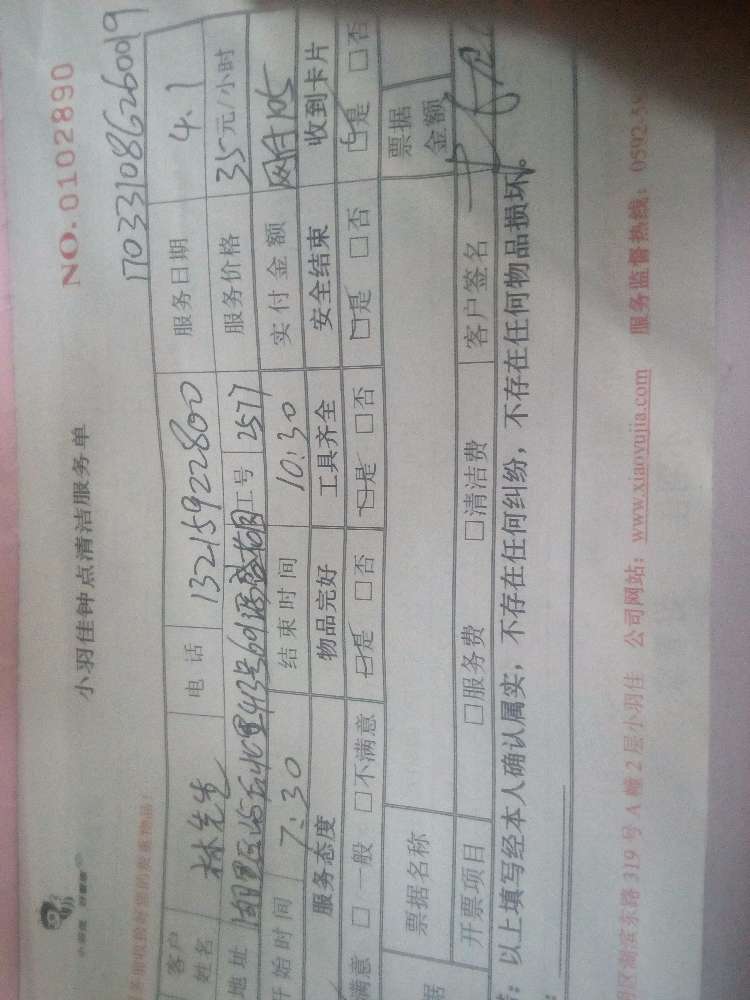 小羽佳钟点清洁服务单
NO.0102890
17033108G260019
客户姓名 林先生 电话 13215922800 服务日期 4.1
地址 工号 2577 服务价格 35元/小时
开始时间 7:30 结束时间 10:30 实付金额 网付105
服务态度 物品完好 工具齐全 安全结束 收到卡片
满意 □一般 □不满意 □是 □否 □是 □否 □是 □否 □是 □否
票据名称 票据金额
开票项目 □服务费 □清洁费 客户签名
：以上填写经本人确认属实，不存在任何纠纷，不存在任何物品损坏。
区湖滨东路319号A幢2层小羽佳 公司网站：www.xiaoyujia.com 服务监督热线：0592-5